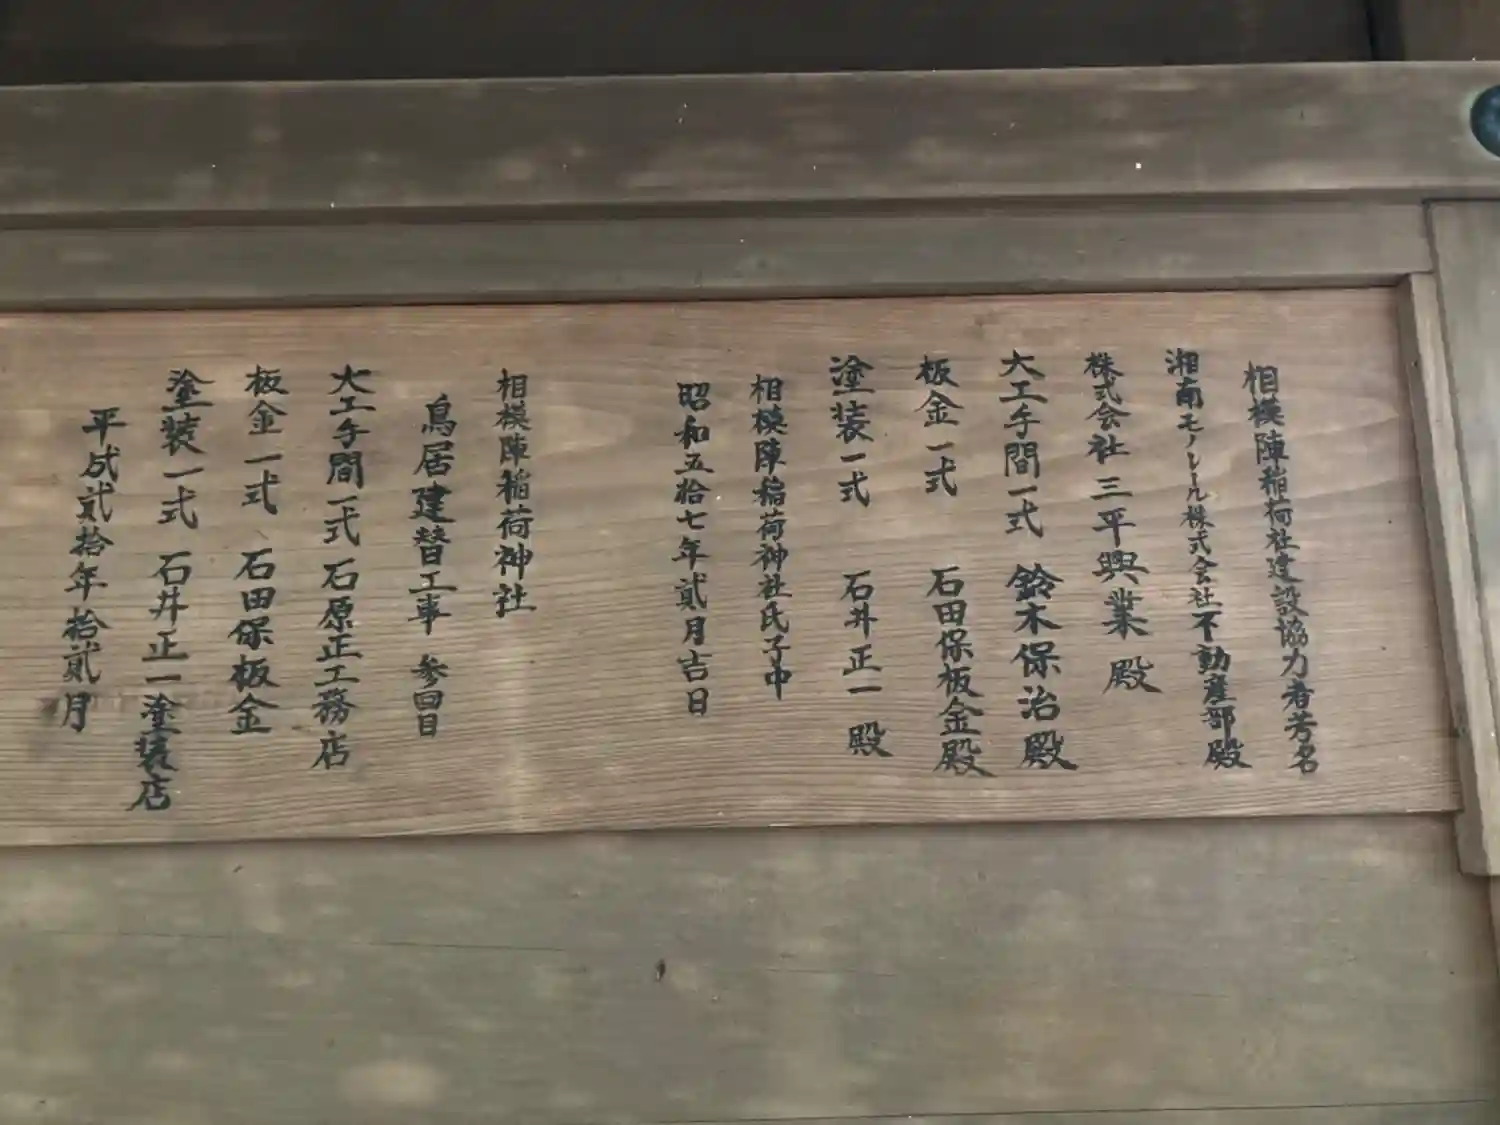 相模陣稲荷社建設協力者芳名
湘南モノレール株式会社不動産部殿
株式会社三平興業殿
大工手間一式 鈴木保治殿
板金一式 石田保板金殿
塗装一式 石井正一殿
相模陣稲荷神社氏子中
昭和五拾七年貳月吉日
相模陣稲荷神社
鳥居建替工事 参回目
大工手間一式 石原正工務店
板金一式 石田保板金
塗装一式 石井正一塗装店
平成貳拾年拾貳月